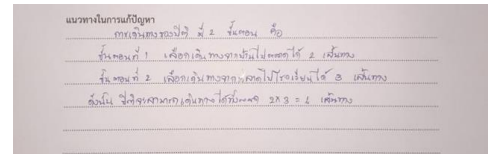 แนวทางในการแก้ปัญหา
การเดินทางของปิติ มี 2 ขั้นตอน คือ
ขั้นตอนที่ 1 เลือกเดินทางจากบ้านไปตลาดได้ 2 เส้นทาง
ขั้นตอนที่ 2 เลือกเดินทางจากตลาดไปโรงเรียนได้ 3 เส้นทาง
ดังนั้น ปิติจะสามารถเดินทางได้ทั้งหมด 2×3 = 6 เส้นทาง